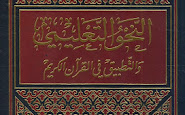 النحو التعليمي
والتطبيق في القرآن الكريم